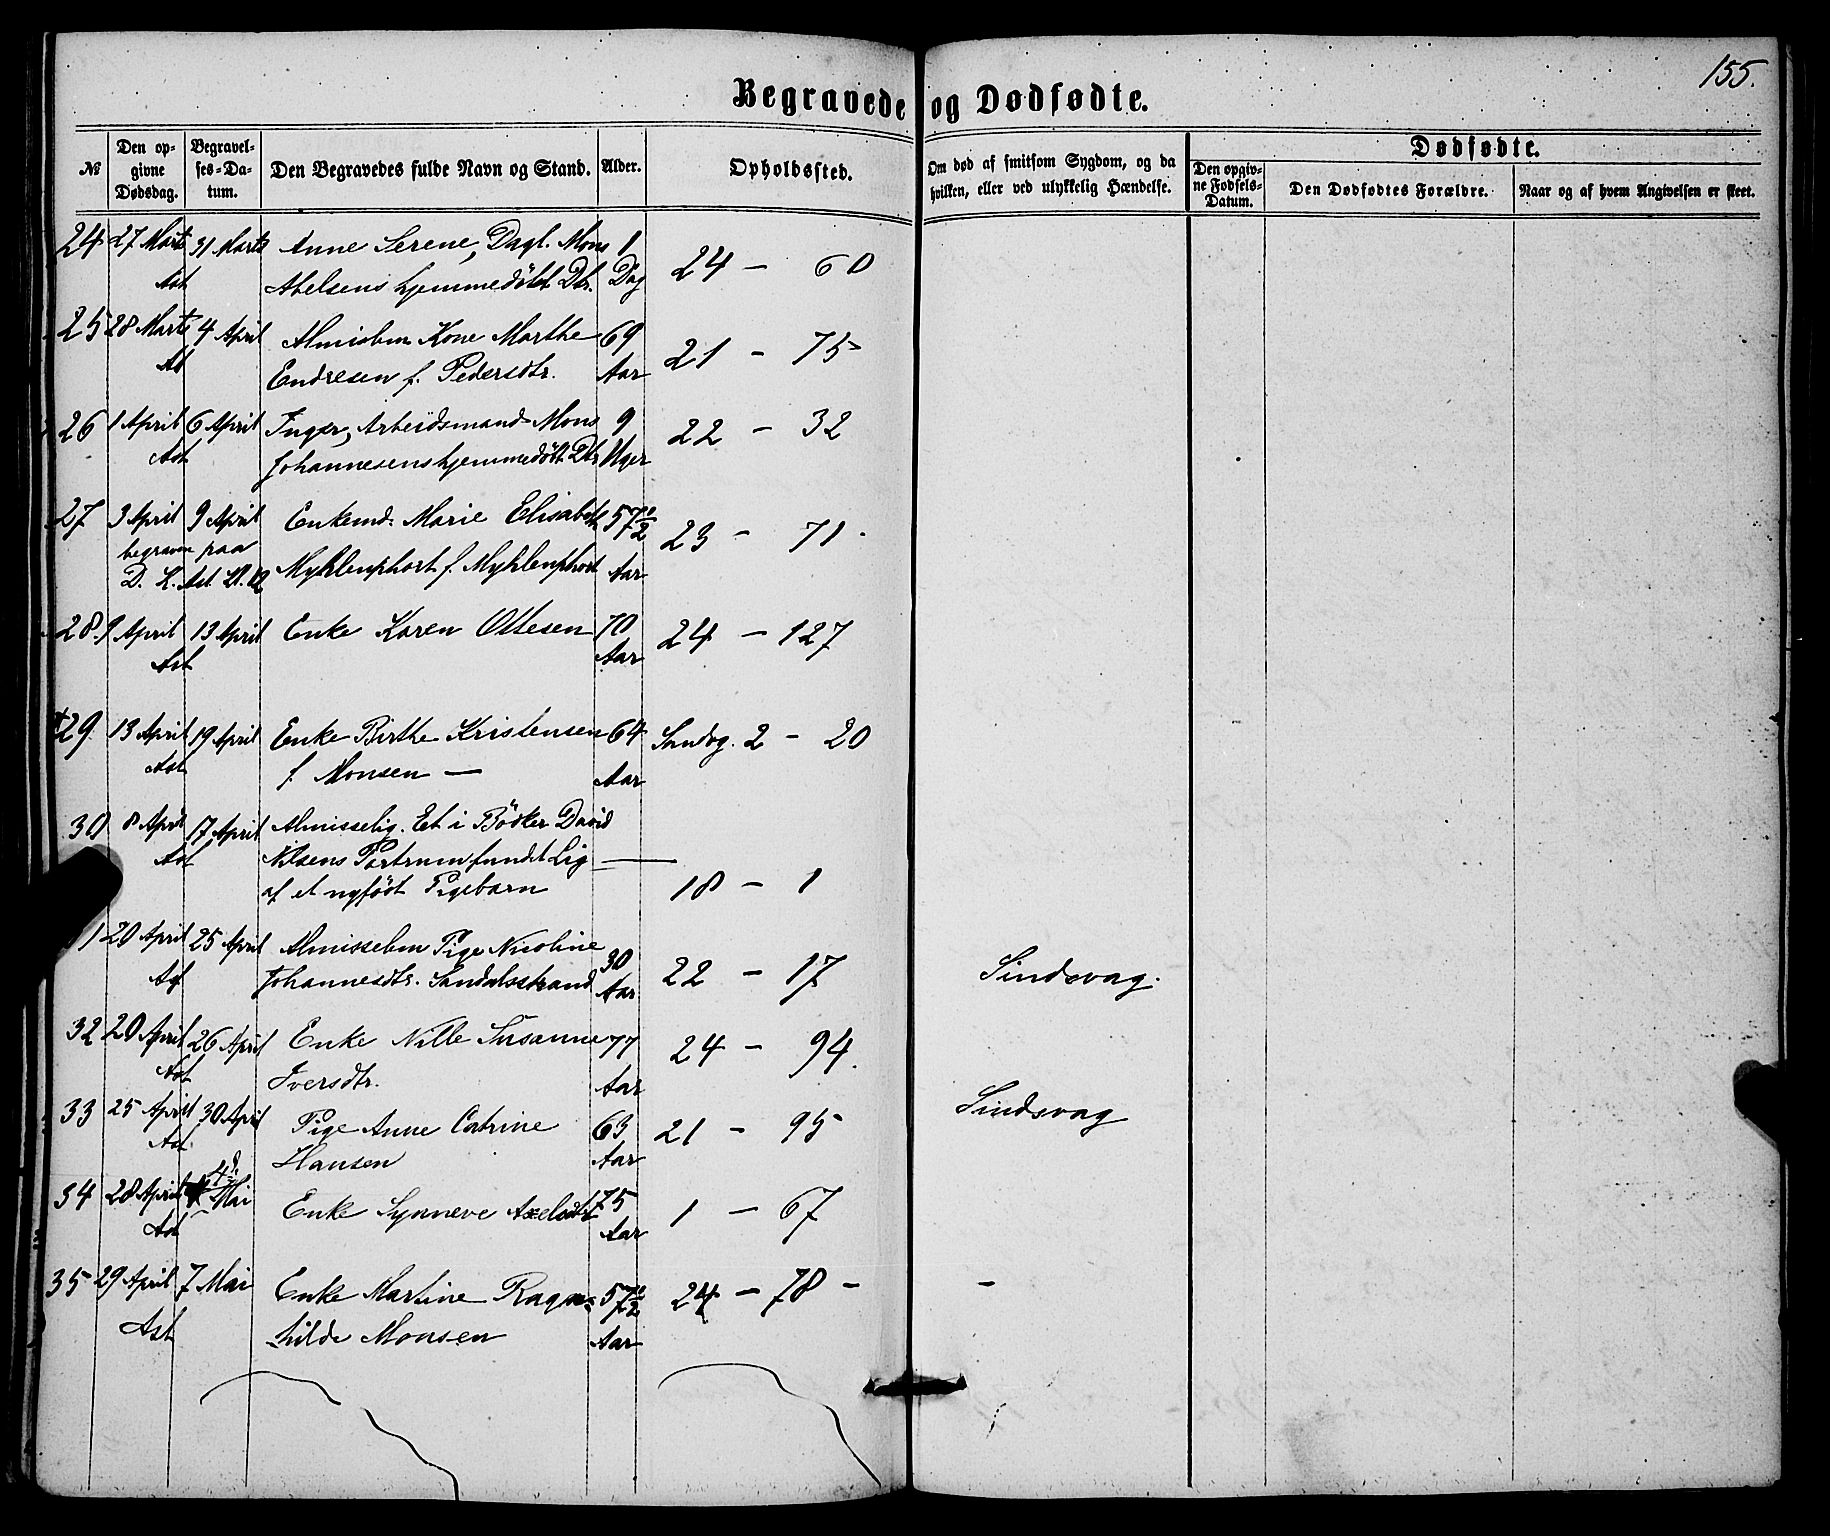 155.
Begravede og Dødfødte.
№
Den opgivne Dødsdag.
Begravelses-Datum.
Den Begravedes fulde Navn og Stand.
Alder.
Opholdssted.
Om død af smitsom Sygdom, og da hvilken, eller ved ulykkelig Hændelse.
Dødfødte.
Den opgivne Fødsels-Datum.
Den Dødfødtes Forældre.
Naar og af hvem Angivelsen er skeet.
24 27 Marts 31 Marts Anne Serene, Dagl. Mons 1
Ast Abelsens hjemmedøbt Dtr. Dag 24 - 60
25 28 Marts 4 April Almislem Kone Marthe 69
Ast Endresen f. Pedersdtr. Aar 21 - 75
26 1 April 6 April Inger, Arbeidsmand Mons 9
Ast Johannesens hjemmedøbt Dtr Uger 22 - 32
27 3 April 9 April Enkemd. Marie Elisabeth 57½
begraven paa
D. K. Ast Myhlenphort f. Myhlenphort Aar 23 - 71
28 9 April 13 April Enke Karen Ottesen 70
Ast Aar 24 - 127
29 13 April 19 April Enke Birthe Kristensen 64 Sandvg. 2 - 20
Ast f. Monsen — Aar
30 8 April 17 April Almisselig. Et i Bödker David
Ast Nilsens Portrum fundet Lig —
af et nyfödt Pigebarn 18 - 1
1 20 April 25 April Almisselem Pige Nicoline 30
Ast Johannesdtr. Sandalsstrand Aar 22 - 17 Sindsvag.
32 20 April 26 April Enke Nille Susanne 77
Ast Iversdtr. Aar 24 - 94.
33 25 April 30 April Pige Anne Catrine 63 21 - 95 Sindsvag
Ast Hansen Aar
34 28 April 4d. Mai Enke Synneve Axelsdtr 75
Ast Aar 1 - 67
35 29 April 7 Mai Enke Martine Ragn= 57½ 24 - 78 - -
Ast hilde Monsen Aar